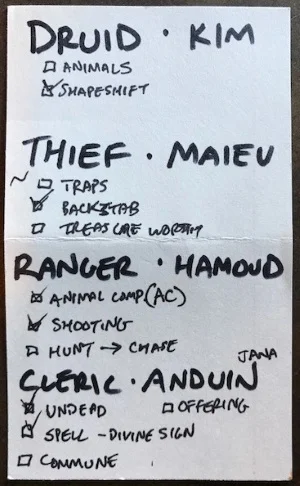 DRUID · KIM
☐ ANIMALS
☑ SHAPESHIFT
THIEF · MAIEV
~ ☐ TRAPS
☑ BACKSTAB
☐ TREASURE WORTH
RANGER · HAMOUD
☒ ANIMAL COMP (AC)
☑ SHOOTING
☐ HUNT → CHASE
JANA
CLERIC · ANDUIN
☑ UNDEAD ☐ OFFERING
☑ SPELL - DIVINE SIGN
☐ COMMUNE